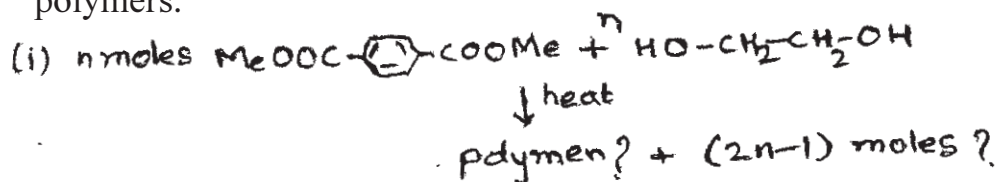 polymers.
(i) n moles MeOOC-⌬-COOMe + n HO-CH2-CH2-OH
↓ heat
polymer? + (2n-1) moles ?